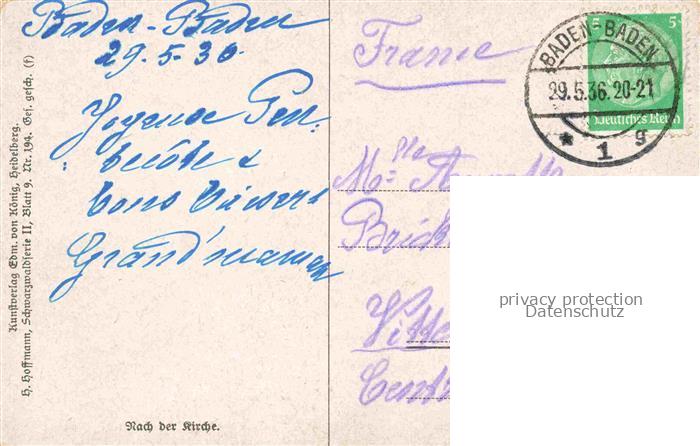 Baden-Baden
29.5.36
Joyeuse Pen-
tecôte &
bons baisers
Grand'maman
France
BADEN-BADEN
29.5.36.20-21
* 1 g
5 5
Deutsches Reich
Mlle
Vitte
Centr
privacy protection
Datenschutz
Nach der Kirche.
Kunstverlag Edm. von König, Heidelberg.
H. Hoffmann, Schwarzwaldserie II, Blatt 9. Nr. 194. Ges. gesch. (f)